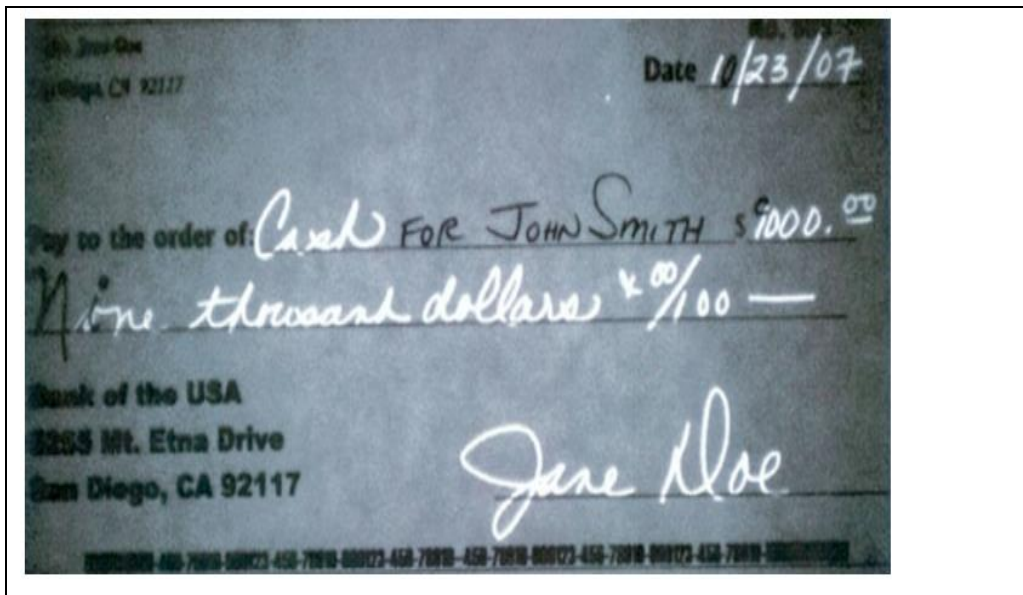 Date 10/23/07
CA 92117
Pay to the order of: Cash FOR JOHN SMITH $ 9000.00
Nine thousand dollars & 00/100 —
Bank of the USA
Mt. Etna Drive
San Diego, CA 92117
Jane Doe